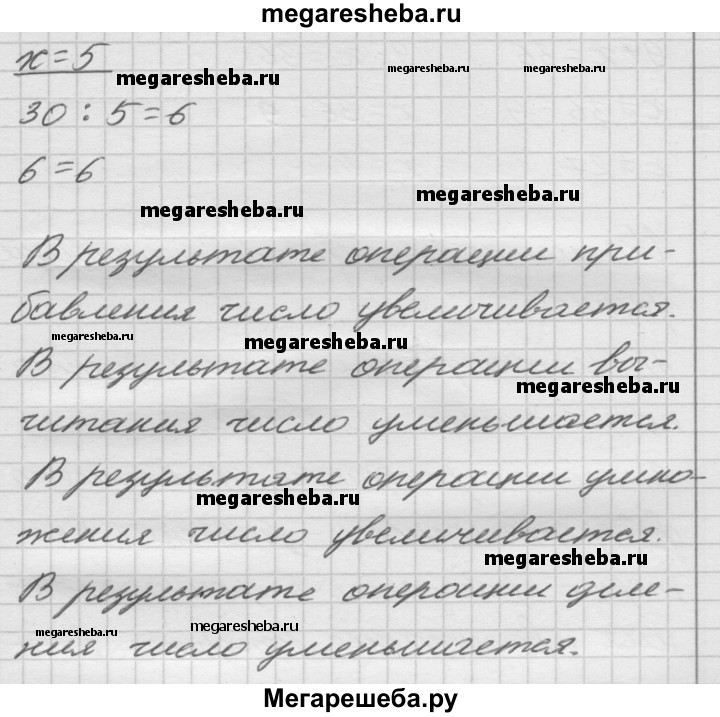 megaresheba.ru
x=5
megaresheba.ru
megaresheba.ru
megaresheba.ru
30 : 5 = 6
6 = 6
megaresheba.ru
megaresheba.ru
В результате операции при-
бавления число увеличивается.
megaresheba.ru
megaresheba.ru
В результате операции вы-
megaresheba.ru
читания число уменьшается.
В результате операции умно-
megaresheba.ru
жения число увеличивается.
megaresheba.ru
В результате операции деле-
megaresheba.ru
megaresheba.ru
ния число уменьшается.
Мегарешеба.ру